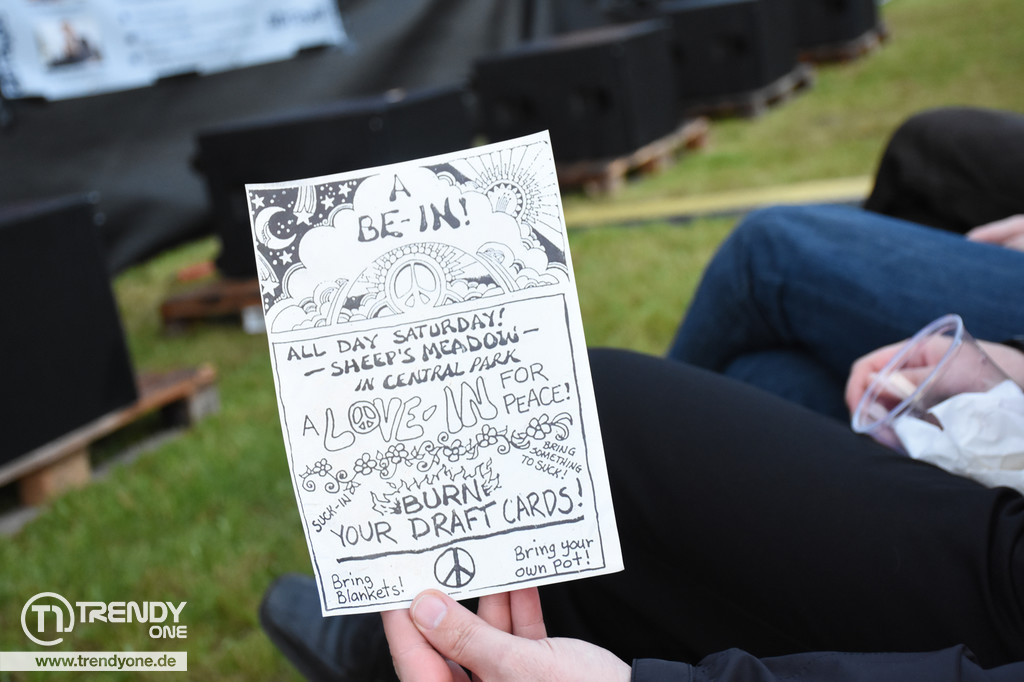 A
BE-IN!
ALL DAY SATURDAY!
— SHEEP'S MEADOW —
IN CENTRAL PARK
A LOVE-IN FOR PEACE!
SUCK-IN
BRING SOMETHING TO SUCK!
BURN
YOUR DRAFT CARDS!
Bring Blankets!
Bring your own pot!
TRENDY
ONE
www.trendyone.de